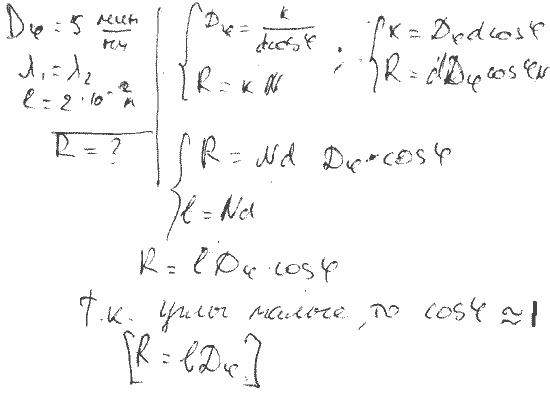 Dφ = 5 мин/нм
λ₁ = λ₂
l = 2 · 10⁻² м
R = ?
{ Dφ = k/(d cos φ) ; { k = Dφ d cos φ
{ R = k N { R = d Dφ cos φ N
{ R = Nd Dφ · cos φ
{ l = Nd
R = l Dφ · cos φ
т.к. углы малые, то cos φ ≈ 1
[R = l Dφ]